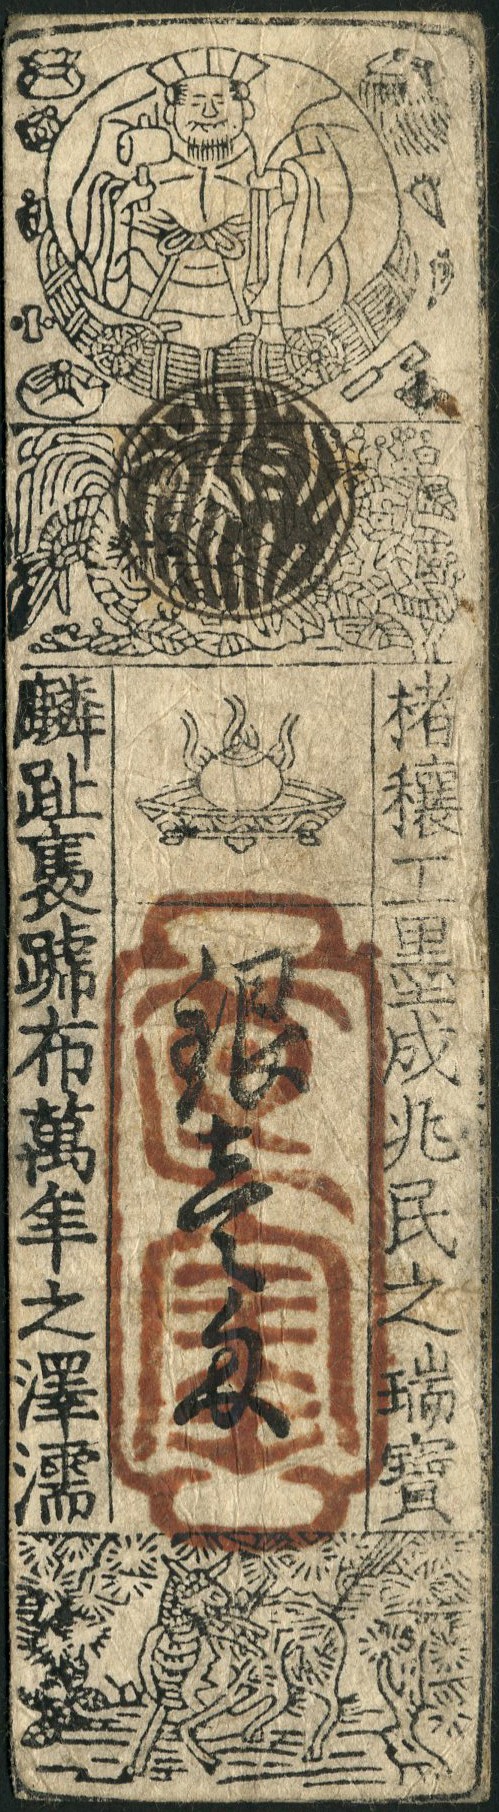 楮穰工墨成兆民之瑞寶
銀壹匁
麟趾褭號布萬年之澤濡